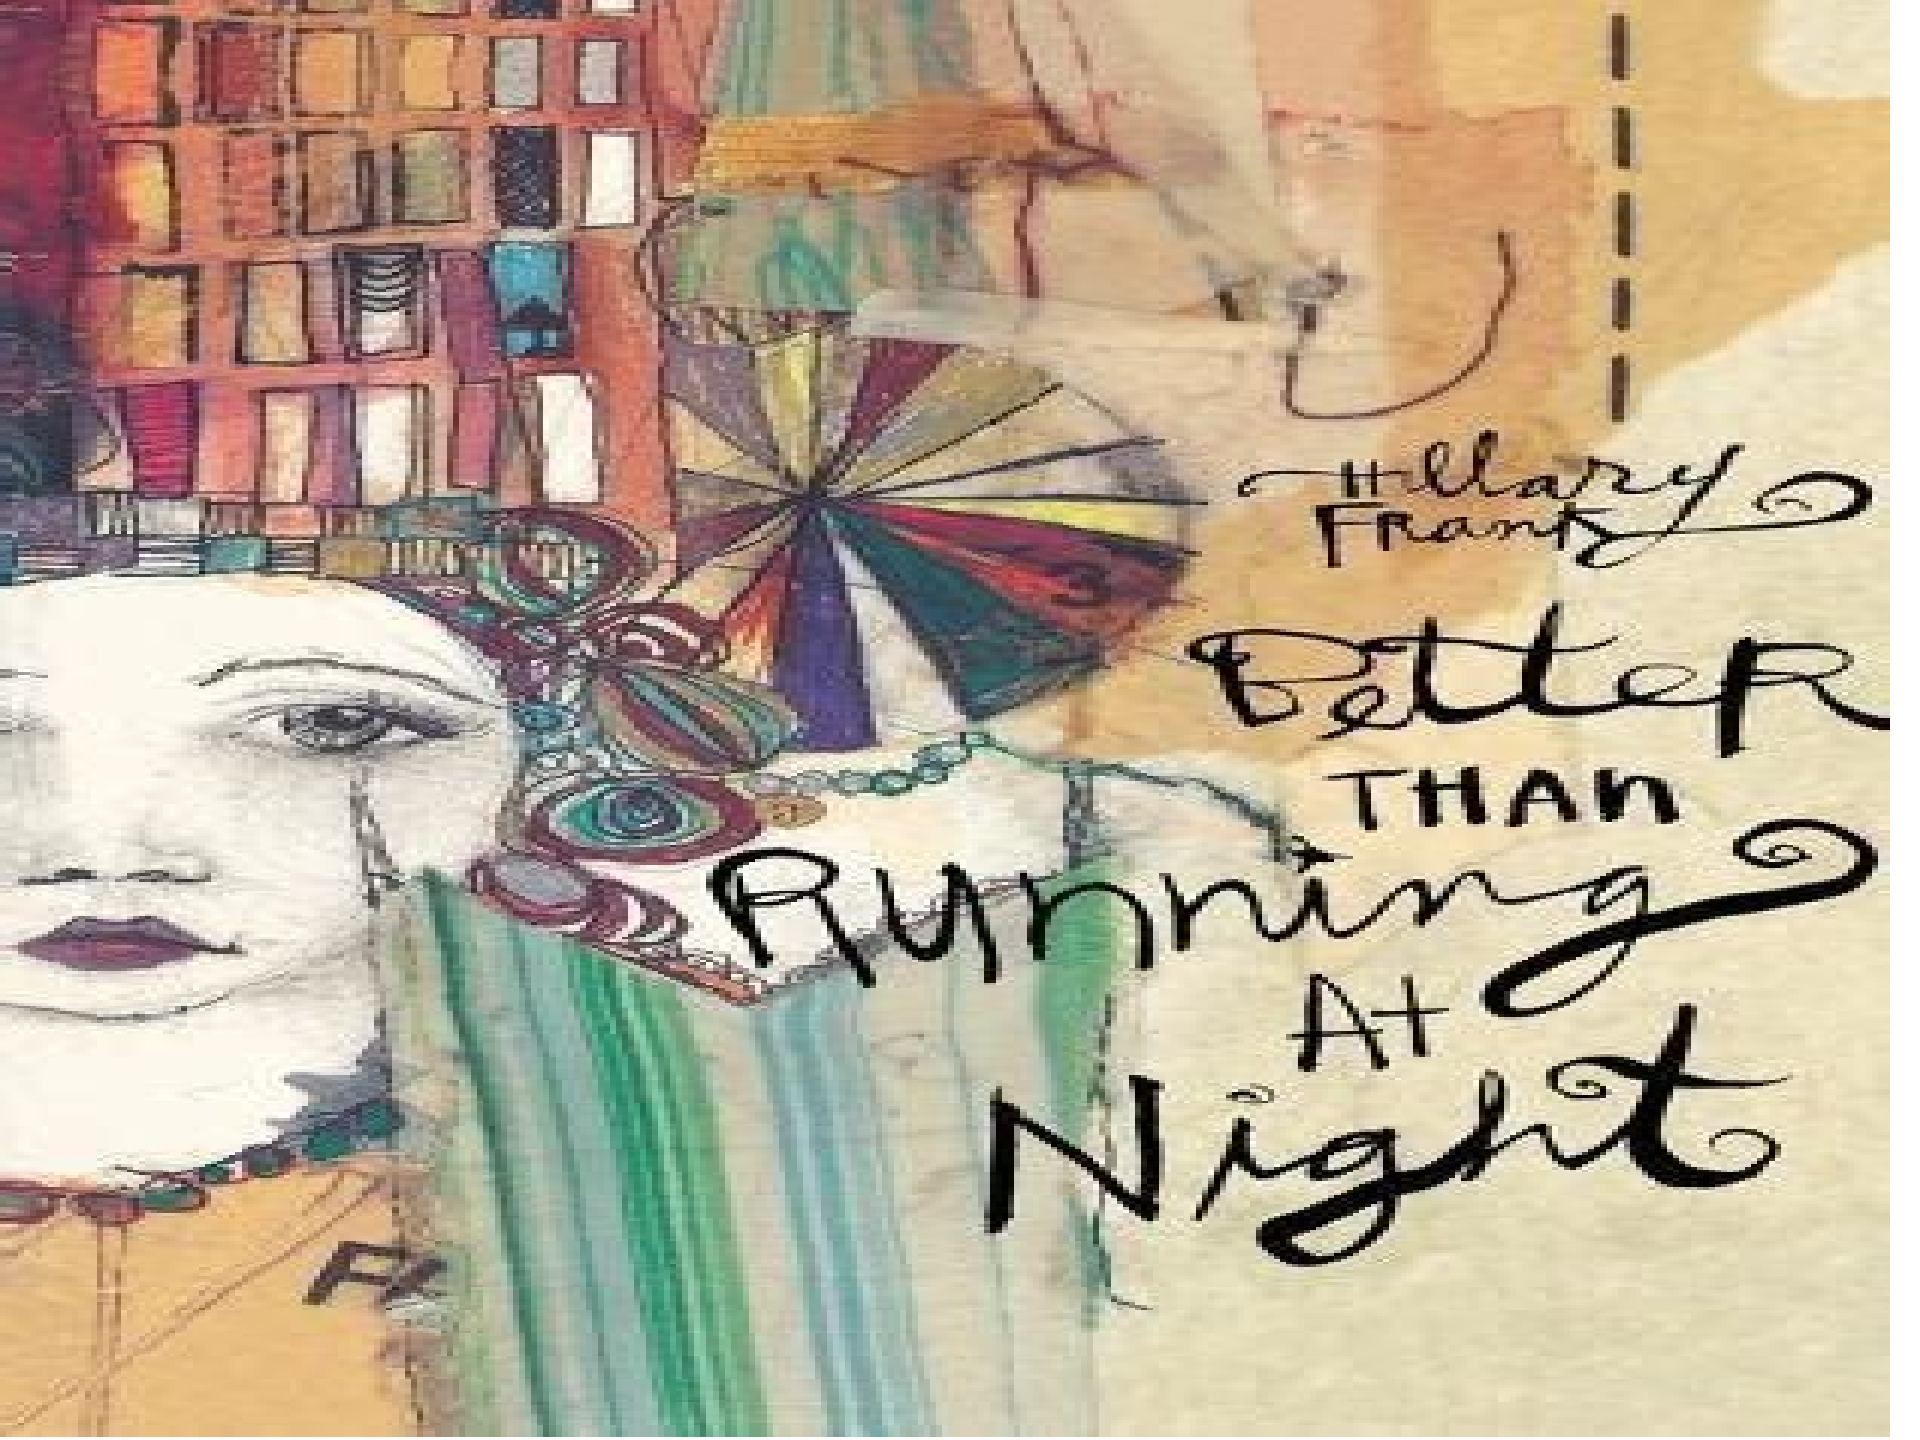 Hillary
Frank
Better
THAN
Running
At
Night